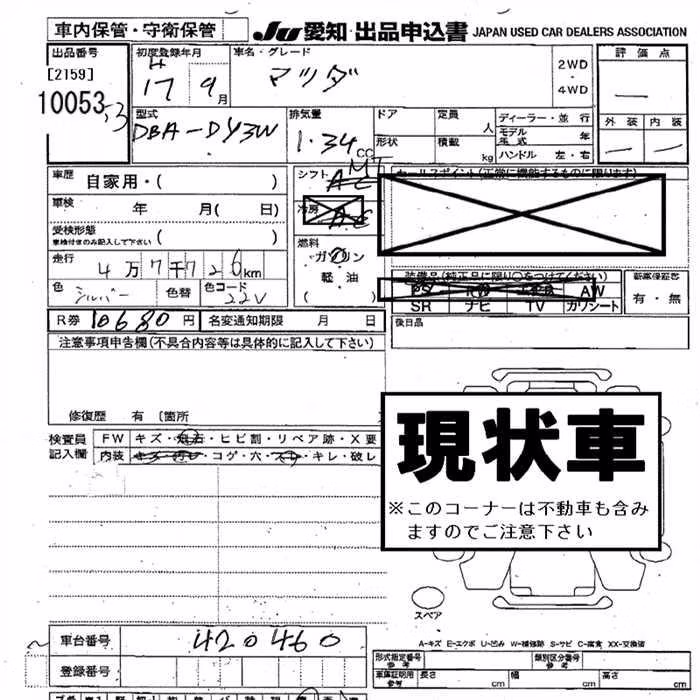 車内保管・守衛保管
JU 愛知 出品申込書 JAPAN USED CAR DEALERS ASSOCIATION
出品番号 初度登録年月 車名・グレード 評価点
[2159] H17 9月 マツダ 2WD ・ 4WD
10053 外装 内装
型式 排気量 ドア 定員 人 ディーラー・並行
DBA-DY3W 1.34cc 形状 積載 kg モデル年式 年
ハンドル 左・右
車歴 自家用・( ) シフト MT セールスポイント(正常に機能するものに限ります)
車検 年 月( 日) 冷房
受検形態 ( )
車検付きのみ記入して下さい
燃料
ガソリン
軽油
( )
走行 4万7千726km
色 シルバー 色替 色コード 22V
装備品(純正品に限り○をつけてください) 新車保証書
PS AW 有・無
SR ナビ TV カワシート
R券 10680円 名変通知期限 月 日 後日品
注意事項申告欄(不具合内容等は具体的に記入して下さい)
修復歴 有 〔箇所
検査員 FW キズ・飛石・ヒビ割・リペア跡・X要
記入欄 内装 コゲ・穴・スレ・キレ・破レ
現状車
※このコーナーは不動車も含み
ますのでご注意下さい
スペア
A-キズ E-エクボ U-凹み W-補修跡 S-サビ C-腐食 XX-交換済
車台番号 420460
形式指定番号 参考 類別区分番号 参考
登録番号 車庫証明用 参考 長さ cm 幅 cm 高さ cm